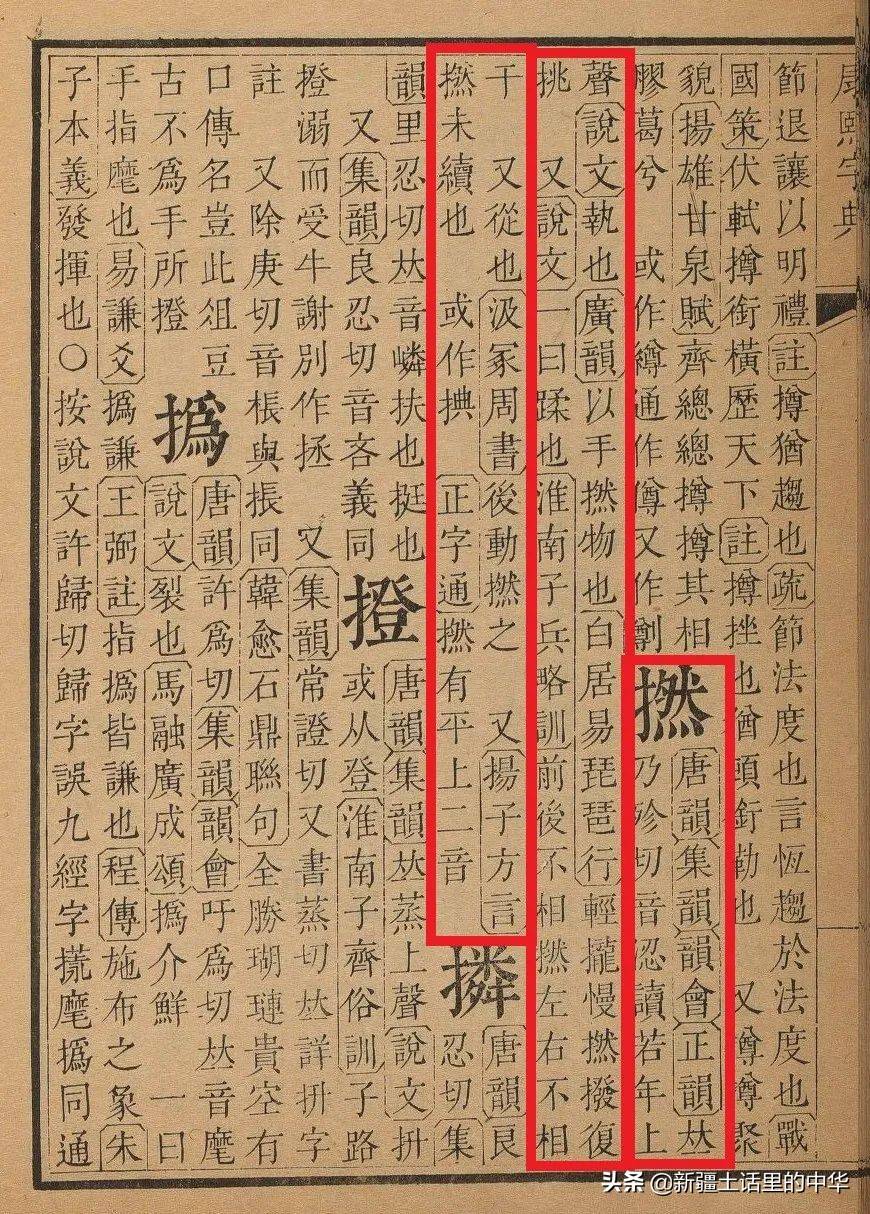 康熙字典
節退讓以明禮註撙猶趨也疏節法度也言恆趨於法度也戰
國策伏軾撙銜橫歷天下註撙挫也猶頓銜勒也 又撙撙聚
貌揚雄甘泉賦齊總總撙撙其相
膠葛兮 或作繜通作僔又作
撚
唐韻集韻韻會正韻𠀤
乃殄切音涊讀若年上
聲說文執也廣韻以手撚物也白居易琵琶行輕攏慢撚撥復
挑 又說文一曰蹂也淮南子兵略訓前後不相撚左右不相
干 又從也汲冢周書後動撚之 又揚子方言
撚未續也 或作捵 正字通撚有平上二音
撛
唐韻良
忍切集
韻里忍切𠀤音嶙扶也挺也
又集韻良忍切音吝義同
撜
唐韻集韻𠀤蒸上聲說文抍
或从登淮南子齊俗訓子路
撜溺而受牛謝別作拯 又集韻常證切又書蒸切𠀤詳抍字
註 又除庚切音棖與掁同韓愈石鼎聯句全勝瑚璉貴空有
口傳名豈此俎豆
古不爲手所撜
撝
唐韻許爲切集韻韻會吁爲切𠀤音麾
說文裂也馬融廣成頌撝介鮮 一曰
手指麾也易謙爻撝謙王弼註指撝皆謙也程傳施布之象朱
子本義發揮也○按說文許歸切歸字誤九經字㨪麾撝同通
头条 @新疆土话里的中华